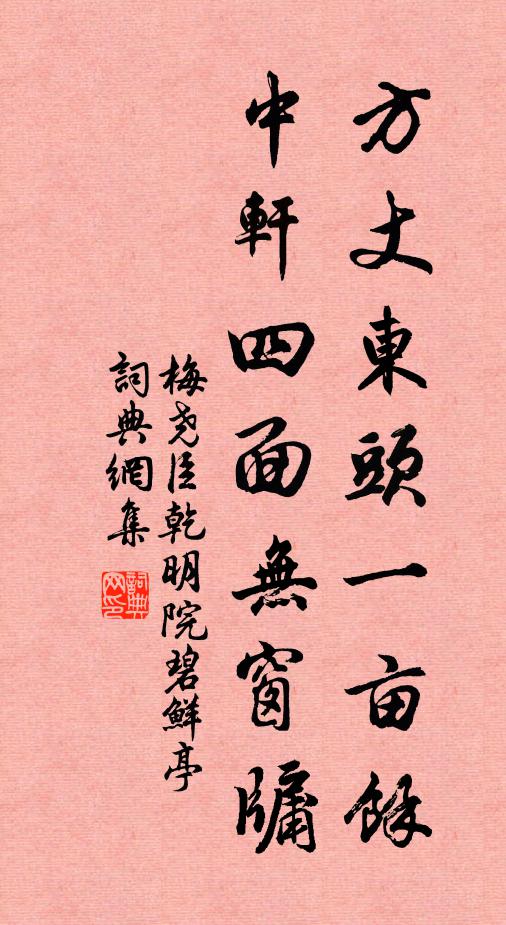 方丈東頭一亩餘
中軒四面無窗牖
梅尧臣乾明院碧鮮亭
詞典網集
詞典網印